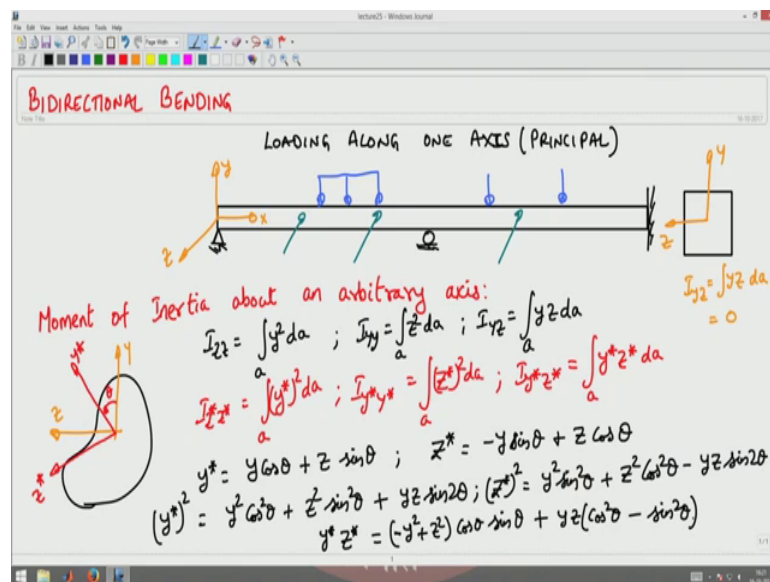 lecture25 - Windows Journal
File Edit View Insert Actions Tools Help
Page Width
B I
BIDIRECTIONAL BENDING
Note Title
16-10-2017
LOADING ALONG ONE AXIS (PRINCIPAL)
y
x
z
y
z
I_yz = ∫ yz da
= 0
Moment of Inertia about an arbitrary axis:
I_zz = ∫_a y² da ; I_yy = ∫_a z² da ; I_yz = ∫_a yz da
I_z*z* = ∫_a (y*)² da ; I_y*y* = ∫_a (z*)² da ; I_y*z* = ∫_a y* z* da
y*
y
θ
z
z*
y* = y cosθ + z sinθ ; z* = -y sinθ + z cosθ
(y*)² = y² cos²θ + z² sin²θ + yz sin2θ ; (z*)² = y² sin²θ + z² cos²θ - yz sin2θ
y* z* = (-y² + z²) cosθ sinθ + yz (cos²θ - sin²θ)
1/1